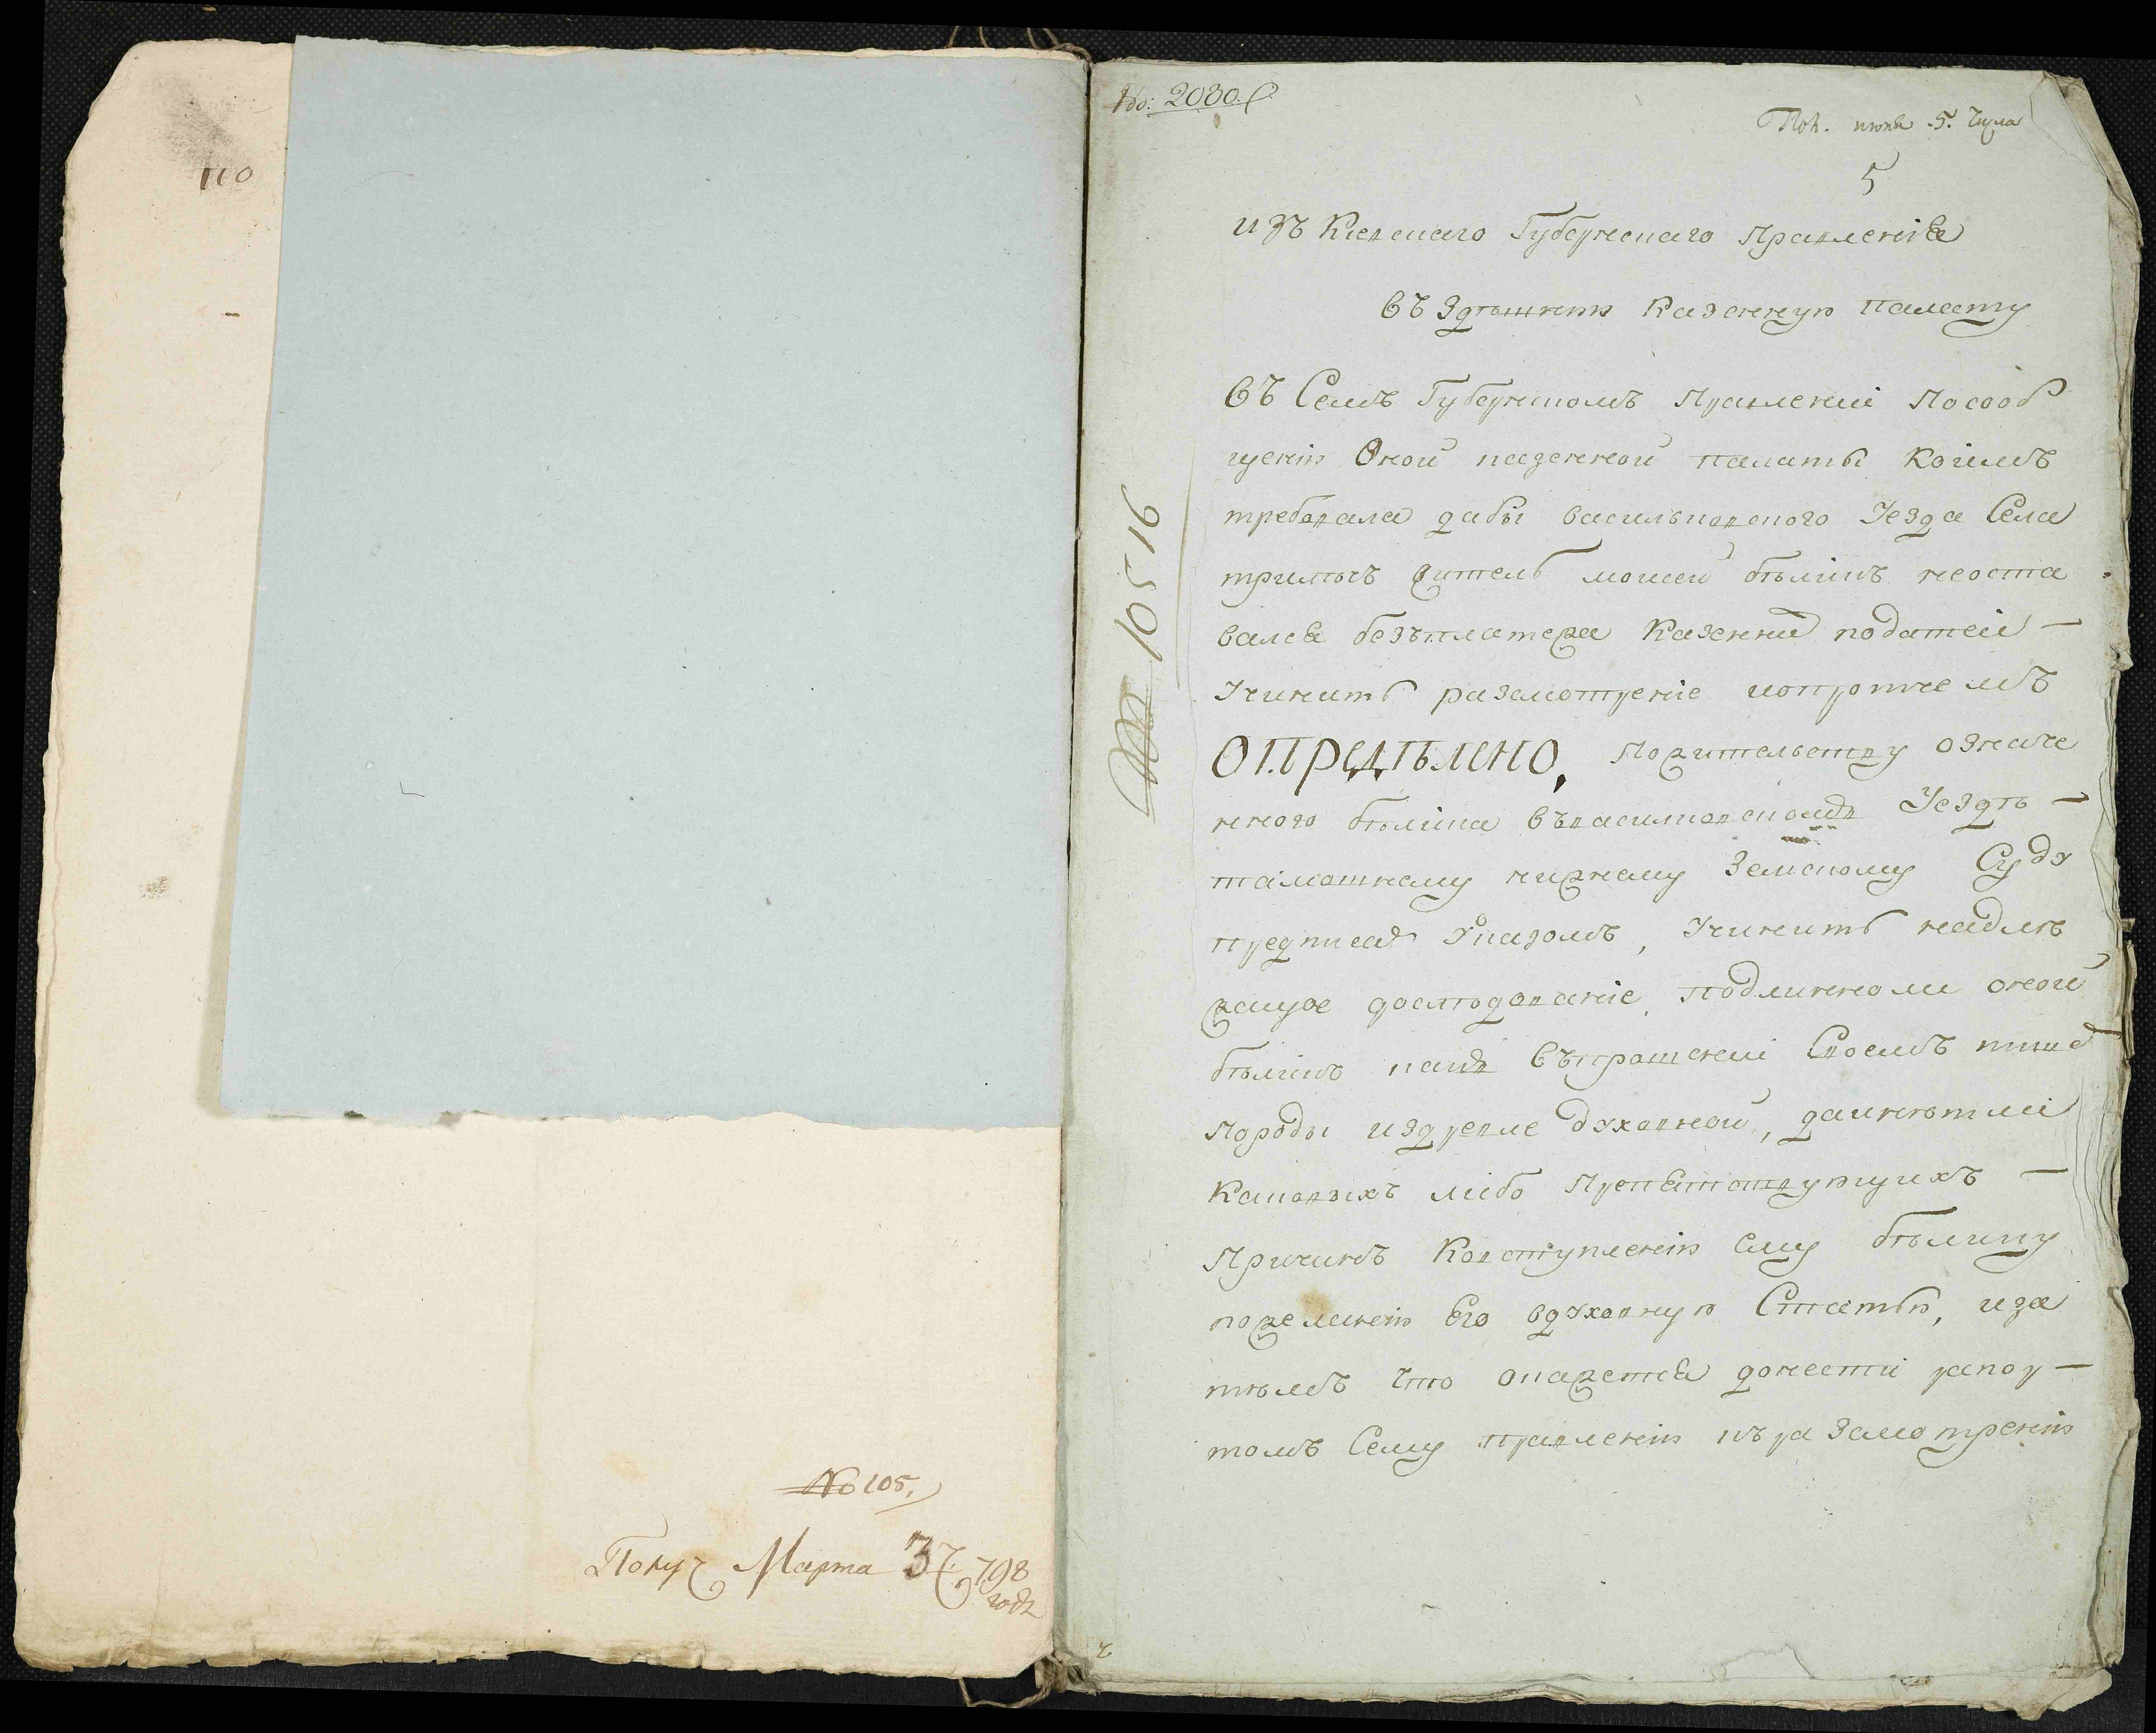 110
№ 105.
Получ Марта 37, 798
года
№: 2080.
Пол. июня .5. числа
5
105 16
изъ Киевскаго Губернскаго Правления
въ здѣшнюю казенную палату
въ Семъ Губернскомъ Правлении Посооб
щению Оной казенной палаты коимъ
требовала дабы васильковского Уезда Села
житель мосей бѣликъ неоста
вался безъплатежа казенни податей —
Учинить разсмотрение
ОПРЕДѢЛЕНО, Пожительству означе
нного бѣлика въвасилковскомъ Уездѣ —
тамошнему нижнему Земскому Суду
предписат Указомъ, Учинить надле
жащое доследование, подлинноли оной
бѣликъ какъ въпрошении Своемъ пише
породы издревле духовной, и
каковыхъ либо Препятствующихъ —
Причинъ Ковступлению Ему бѣлику
пожеланию Его вдуховную Статью, иза
тѣмъ что окажется донести рапор —
томъ Сему правлению къразсмотрению